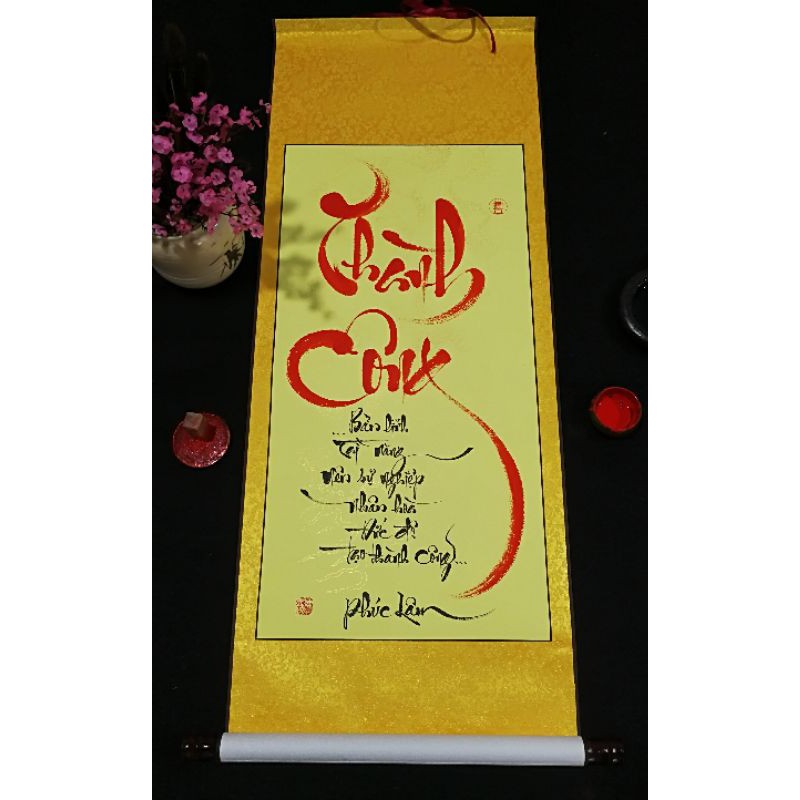 Thành
Công
...Bản lĩnh
tài năng
nên sự nghiệp
nhân hòa
đức độ
tạo thành công...
Phúc Lâm